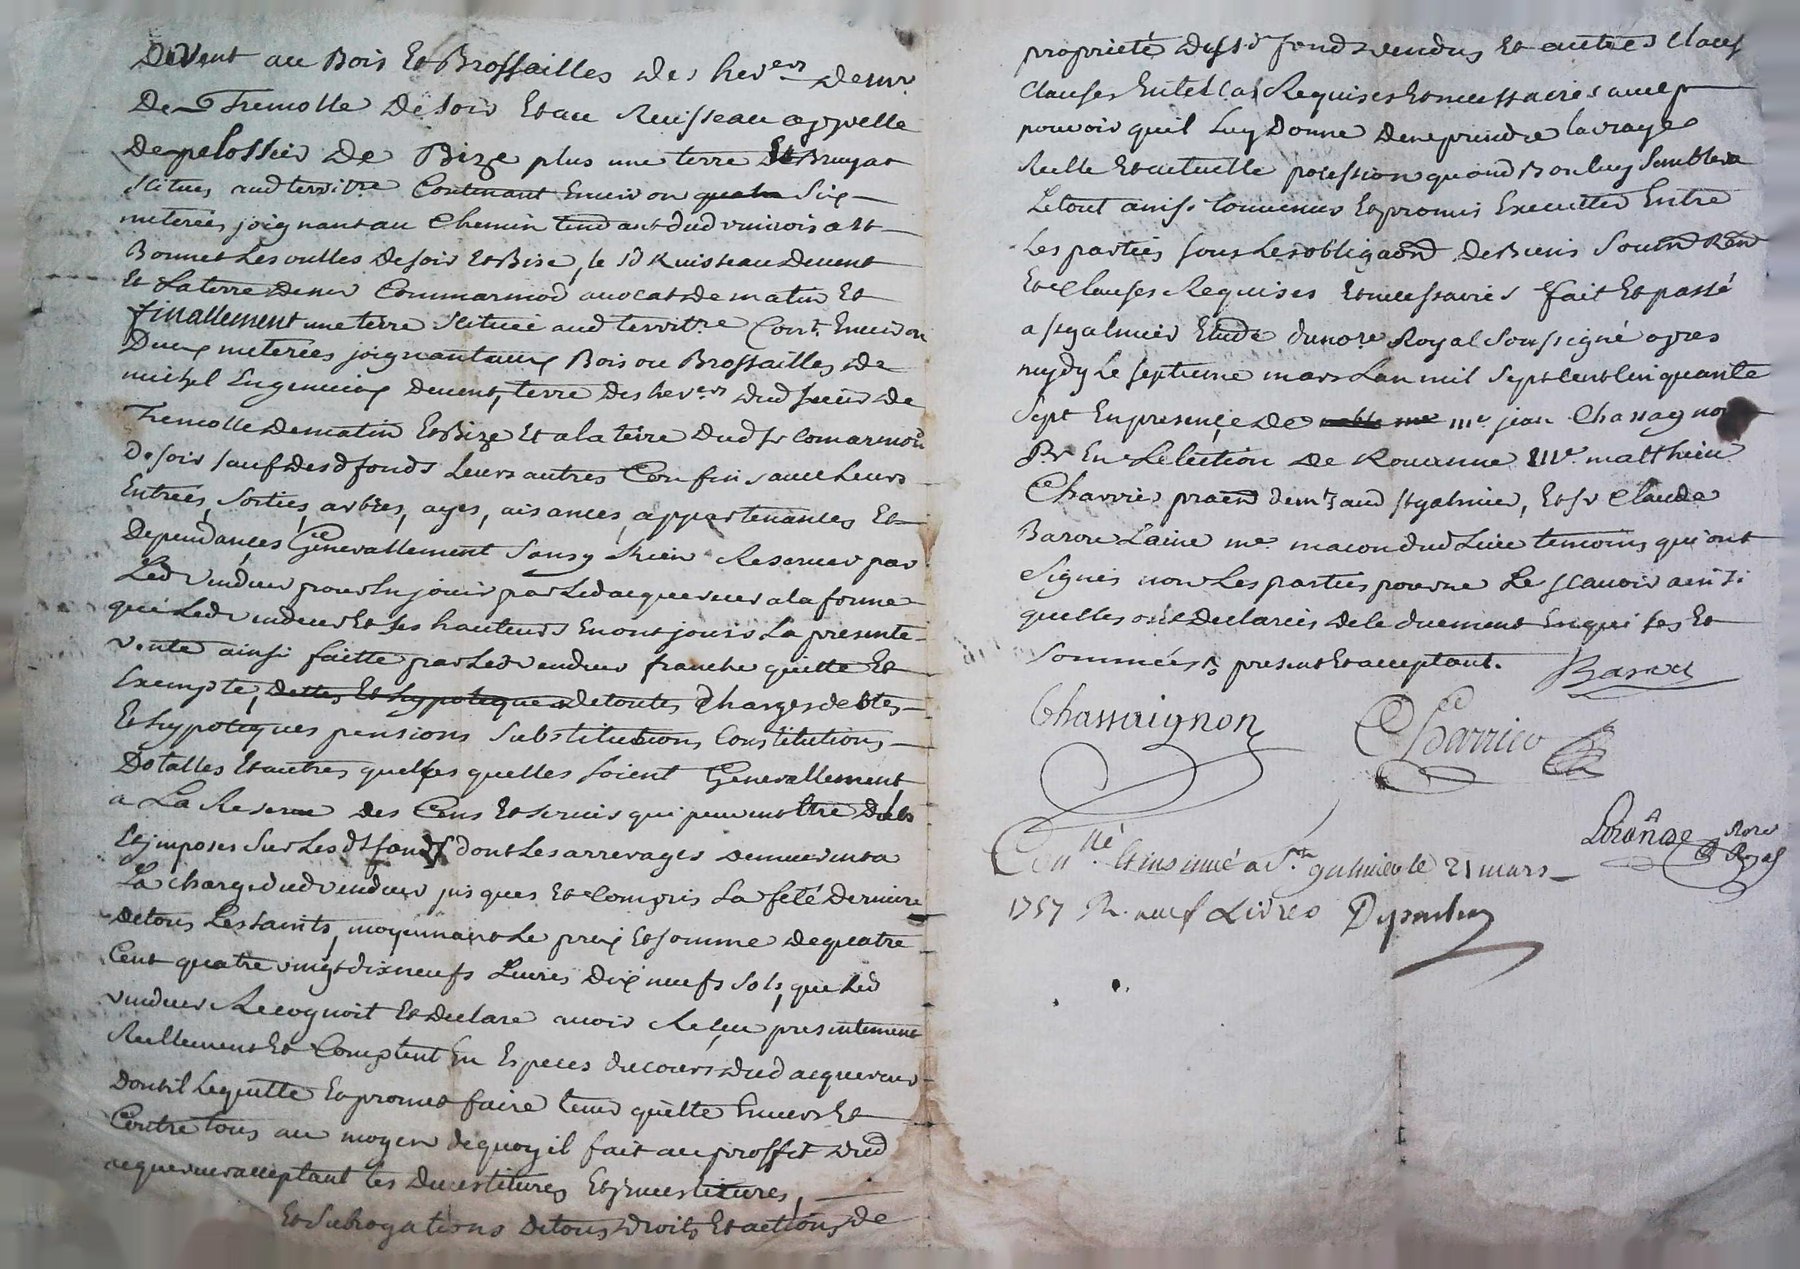 De Vent au Bois Et Brossailles des her.ers de mr.
De Tremolle De soir Et au Ruisseau appelle
De pelossier De Bize plus une terre Et Bruyat
scitues aud territre Contenant Environ quatre Six
meterées joignant au Chemin tendant dud à St
Bonnet Les oulles De soir Et Bise, le sd Ruisseau De vent
Et La terre de mr Commarmod avocat De matin Et
finallement une terre scituée aud territre Cont. Environ
Deux meterées joignant aux Bois ou Brossailles de
michel De vent, terre Des her.ers dud sieur de
Tremolle De matin Et Bize Et a la terre Dud sr Comarmond
De soir sauf desd fonds Leurs autres Confins avec Leurs
Entrées, Sorties, arbres, ayes, aisances, appartenances Et
Dependances Generallement Sans y Rien Reserver par
Led vendeur pour En jouir par Led acquereur a la forme
que Led vendeur Et ses hauteurs En ont jouis La presente
vente ainsi faitte par Led vendeur franche quitte Et
Exempte, dettes Et hypoteques de toutes Charges debtes
Et hypoteques pensions Substitutions Constitutions
Dotalles Et autres quelles quelles soient Generallement
a La Reserve des Cens Et servis qui peuvent Etre Dubs
Et imposes Sur Les dts fonds dont Les arrerages demeurent a
La charge dud vendeur jusques Et Compris La feté Derniere
De tous Les saints, moyennant Le prix Et somme de quatre
Cent quatre vingt dix neufs Livres Dix neufs sols, que Led
vendeur Recognoit Et Declare avoir Reçeu presentement
Reellement Et Comptent En Especes du cours Dud acquereur
Dont il Le quitte Et promet faire tenir quitte Envers Et
Contre tous au moyen de quoy il fait au proffit Dud
acquereur acceptant les Devestitures Et jnvestitures,
Et Subrogations De tous droits Et actions de
propriété Desd. fonds vendus Et autres Claus
Clauses En tel Cas Requises Et necessaires avec
pouvoir quil Luy Donne D'en prendre la vraye
Reelle Et actuelle possession quand Bon luy Semblera
Le tout ainsi Convenus Et promis Executter Entre
Les parties sous Les obligaons De Biens
Et Clauses Requises Et necessaires fait Et passé
a st galmier Etude du nore Royal Soussigné apres
mydy Le septieme mars Lan mil Sept Cent Cinquante
Sept En presence De noble me me jean Chassagnon
Pr En Lelection de Rouanne Me. matthieu
Charrier praen demt aud st galmier, Et sr Claude
Baron Laine me macon dud Lieu temoins qui ont
Signés non Les parties pour ne Le scavoir ainsi
quelles ont Declarées de le duement Enquises Et
Sommées present Et acceptant. Baron
Chassaignon Charrier
Nore Royal
Conllé Et insinué a St. galmier le 21 mars
1757 R. neuf Livres